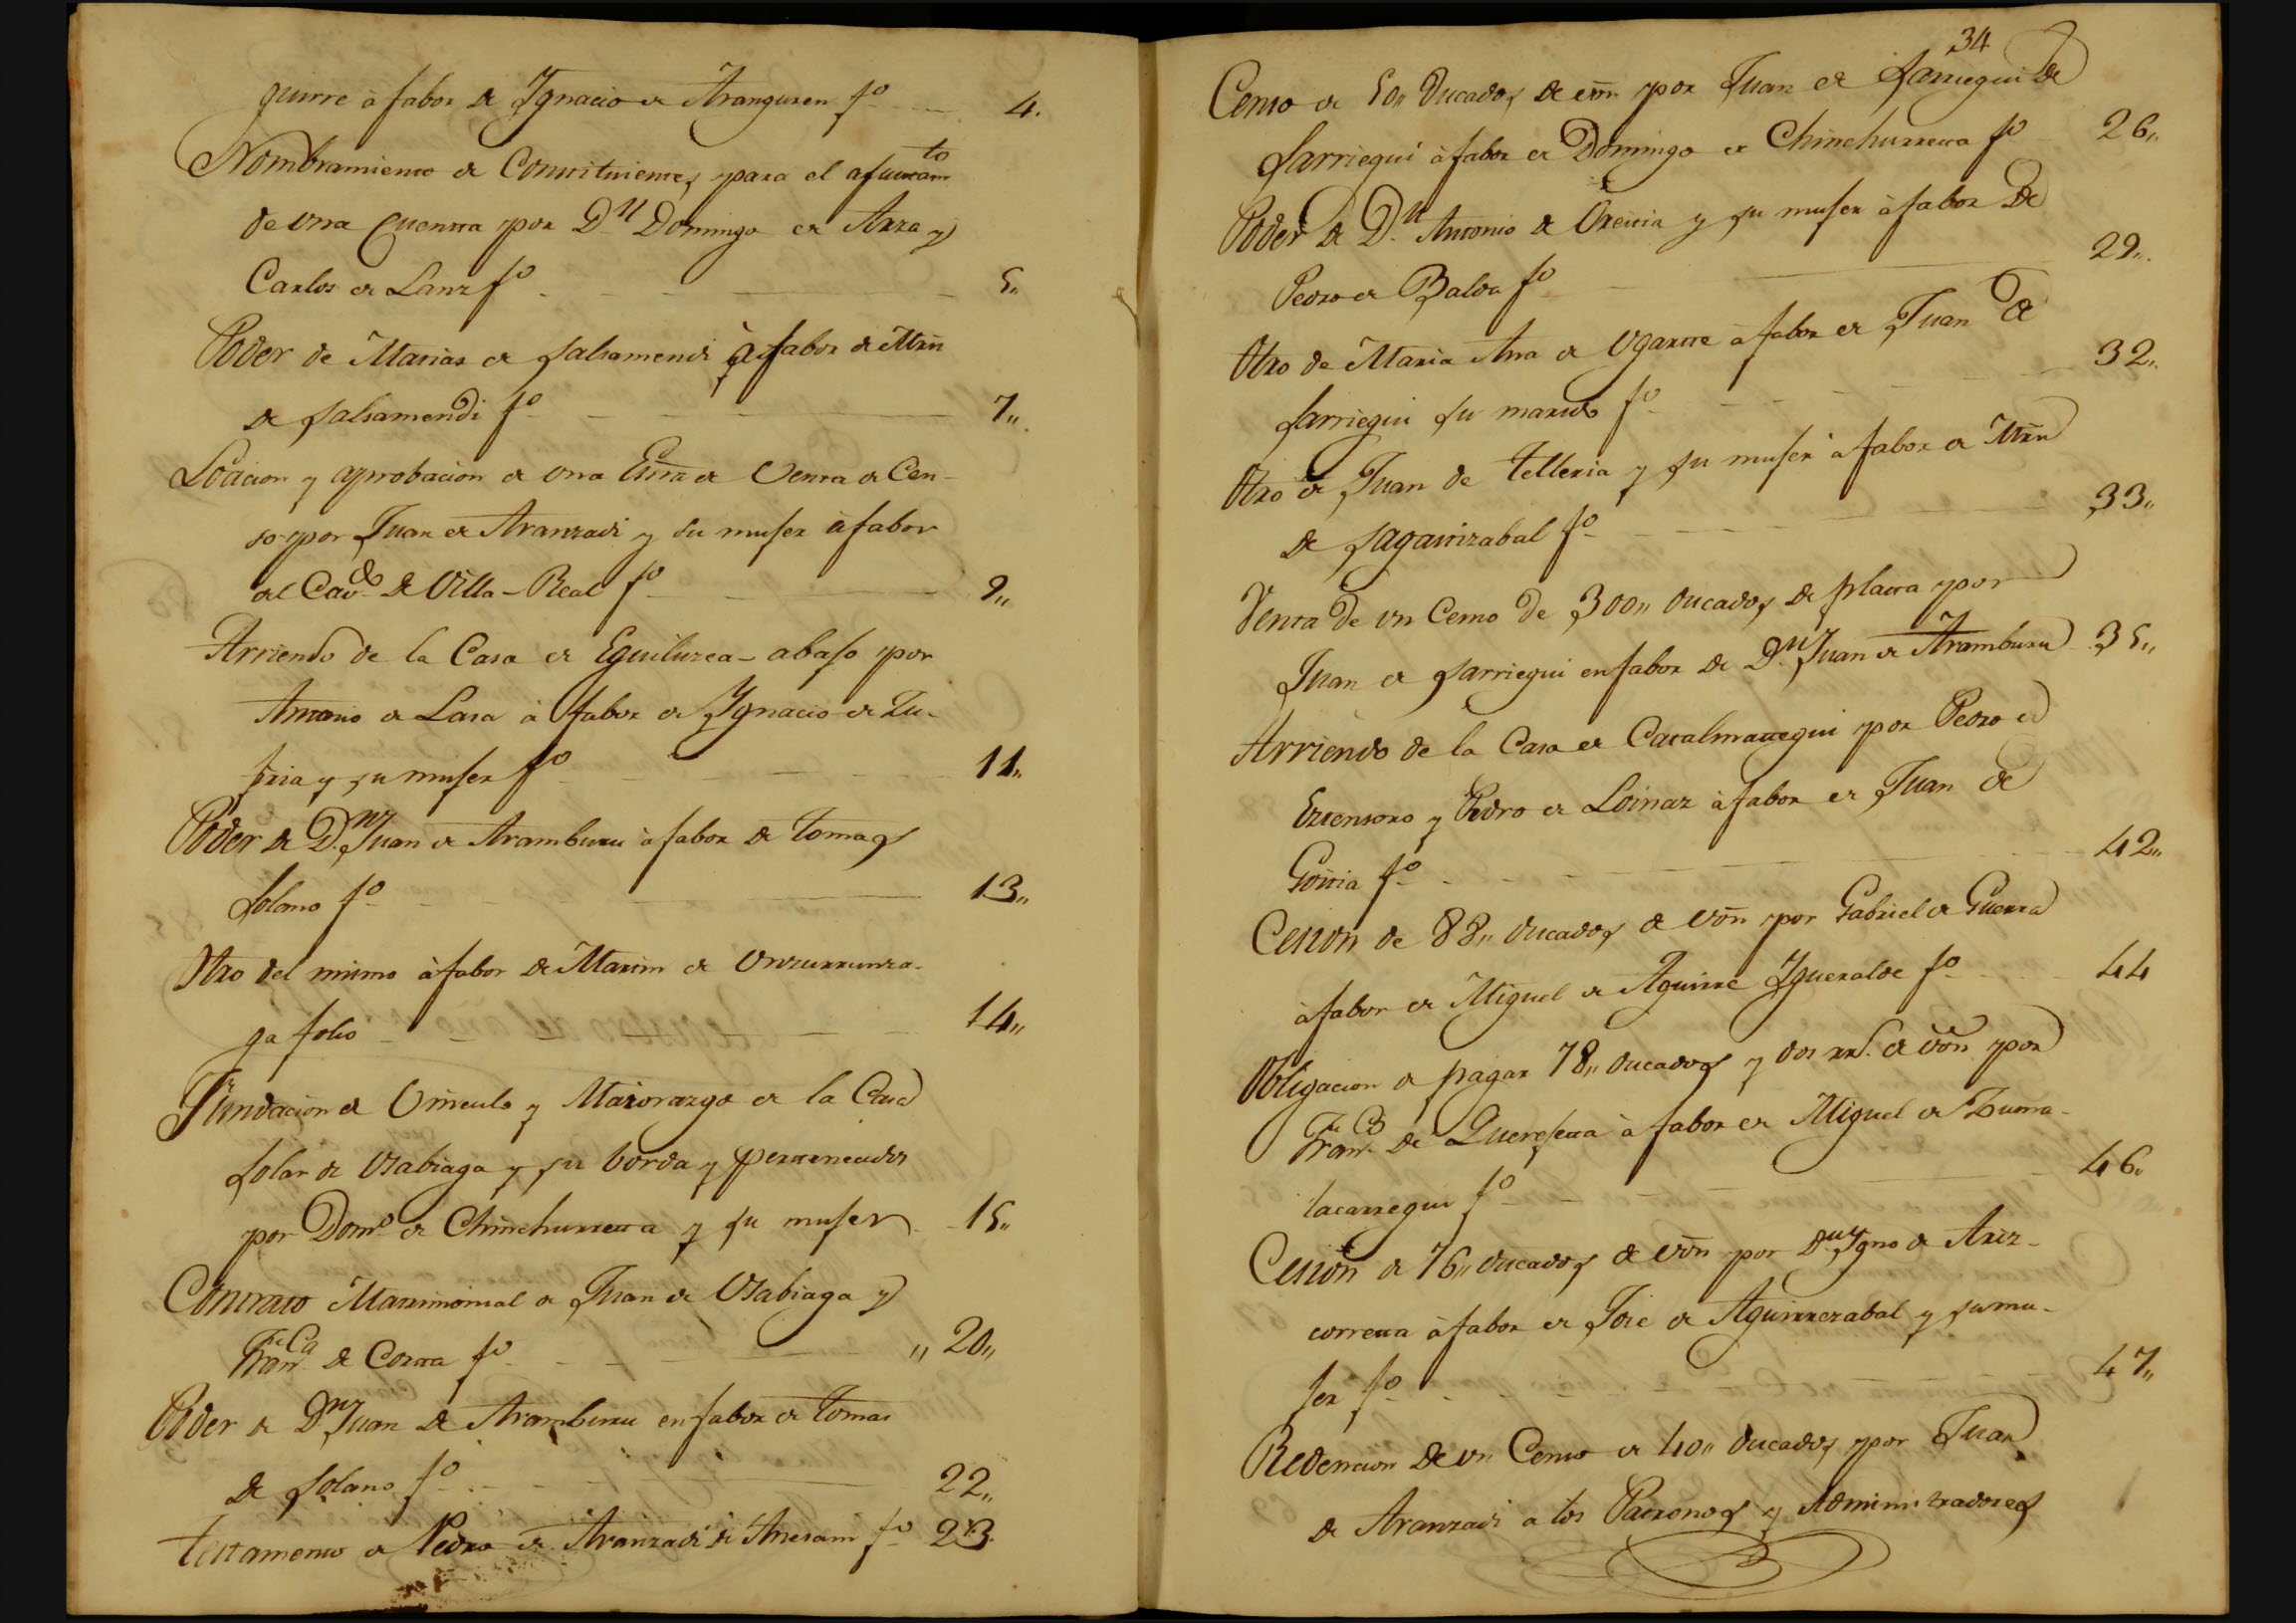 guirre à fabor de Ygnacio de Aranguren fº 4.
Nombramiento de Constituientes para el afustamto
de vna Cuenta por Dn Domingo de Arza y
Carlos de Lanz fº 5,,
Poder de Matias de Salsamendi à fabor de Mrñ
de Salsamendi fº 7,,
Loacion y aprobacion de vna Esñra de Venta de Cen-
so por Juan de Aranzadi y su muger à fabor
del Cavdo de Villa-Real fº 9,,
Arriendo de la Casa de Eguiluzea-abajo por
Antonio de Lasa à fabor de Ygnacio de Zu-
fria y su muger fº 11,,
Poder de Dn Juan de Aramburu à fabor de Tomas
Solano fº 13,,
Otro del mismo à fabor de Martin de Vrruzurrunza-
ga folio 14,,
Fundacion de Vinculo y Maiorazgo de la Casa
Solar de Vsabiaga y su borda y pertenecidos
por Domo de Chinchurreta y su muger 15,,
Contrato Matrimonial de Juan de Vsabiaga y
Franca de Corta fº ,, 20,,
Poder de Dn Juan de Aramburu en fabor de Tomas
de Solano fº 22,,
Testamento de Pedro de Aranzadi de fº 23.
34
Censo de 50,, Ducados de vōn por Juan de Sarriegui de
Sarriegui à fabor de Domingo de Chinchurreta fº 26,,
Poder de Dn Antonio de Oreitia y su muger à fabor de
Pedro de Balda fº 29,,
Otro de Maria Ana de Vgarte à fabor de Juan de
Sarriegui su marido fº 32,,
Otro de Juan de Telleria y su muger à fabor de Mrñ
de Sagastizabal fº 33,,
Venta de vn Censo de 300,, ducados de plata por
Juan de Sarriegui en fabor de Dn Juan de Aramburu 35,,
Arriendo de la Casa de Catalmategui por Pedro de
y Pedro de Loinaz à fabor de Juan de
Goitia fº 42,,
Cesion de 88,, ducados de vōn por Gabriel de Guerra
à fabor de Miguel de Aguirre Ygueralde fº 44
Obligacion de pagar 78,, ducados y dos rrs. de vōn por
Franco de Querejeta à fabor de Miguel de Zuma-
lacarregui fº 46,,
Cesion de 76,, ducados de vōn por Dn Ygno de Ariz-
correta à fabor de Jose de Aguirrezabal y su mu-
ger fº 47,,
Redencion de vn Censo de 40,, ducados por Juan
de Aranzadi a los Patronos y Administradores